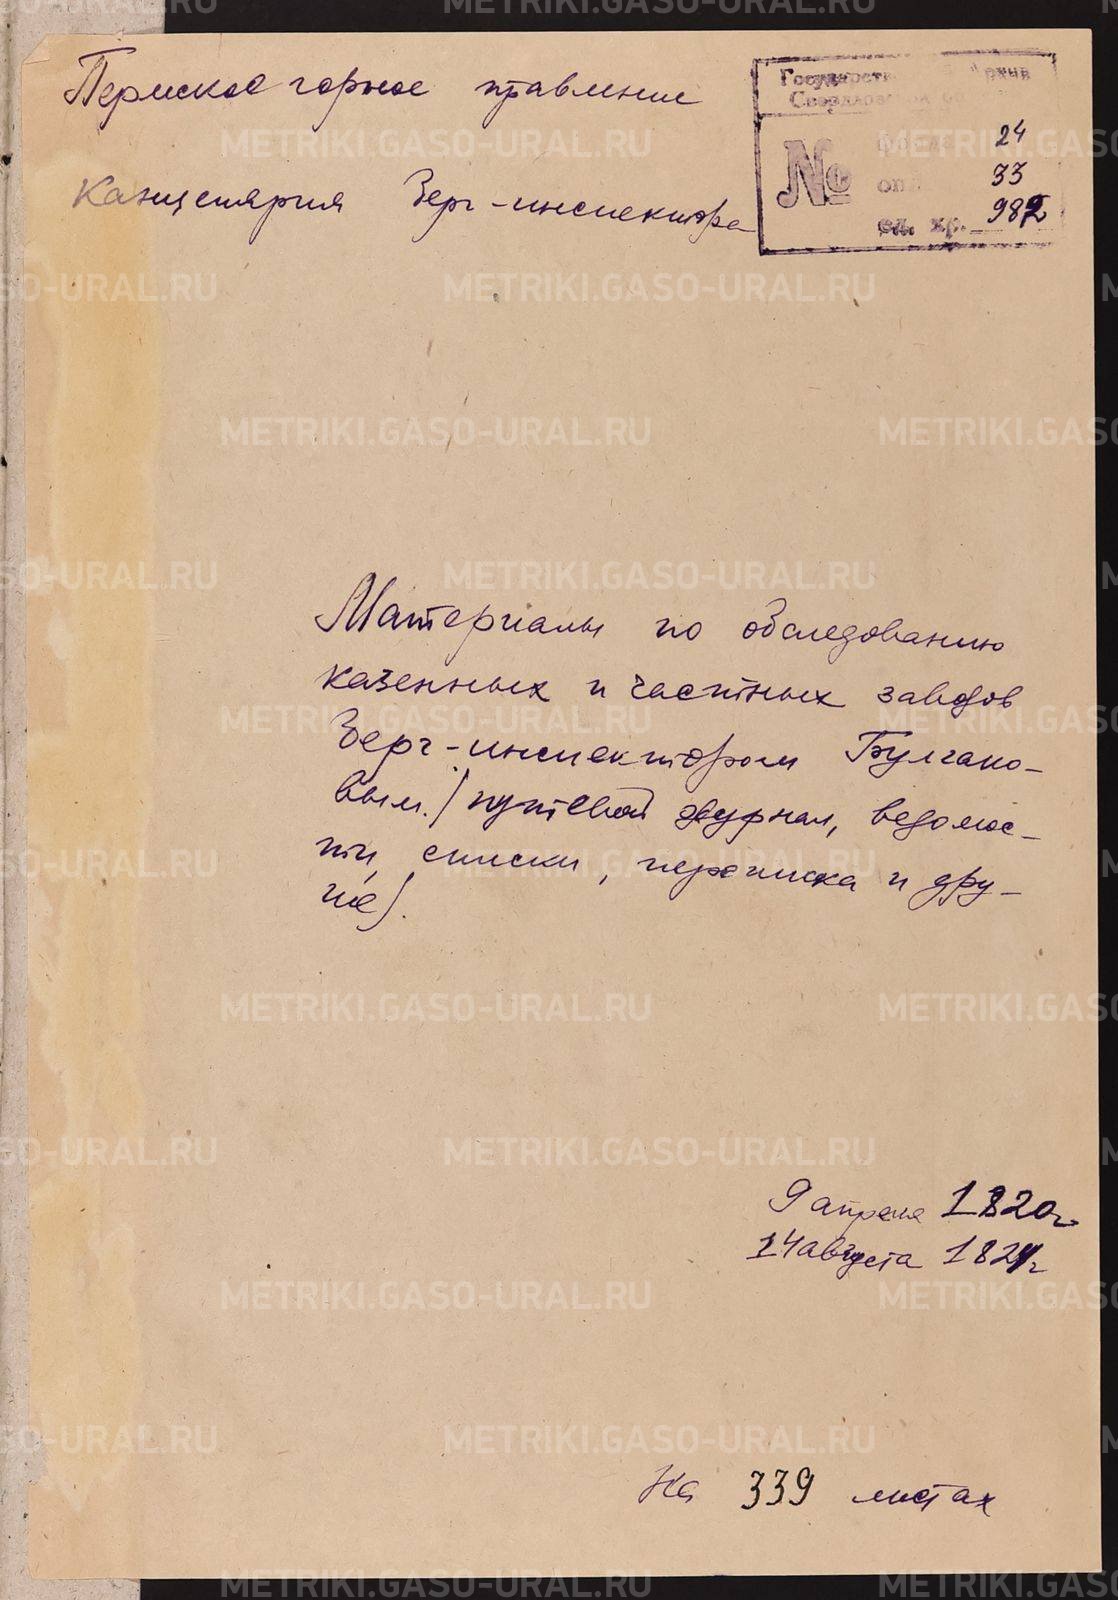 Пермское горное правление
Канцелярия Берг-инспектора
Государств Архив
Свердловской об
№
фонд 24
оп. 33
ед. хр. 982
Материалы по обследованию
казенных и частных заводов
Берг-инспектором Булгако-
вым. /путевой журнал, ведомос-
ти, списки, переписка и дру-
гие/.
9 апреля 1820г
14 августа 1821г
На 339 листах
METRIKI.GASO-URAL.RU